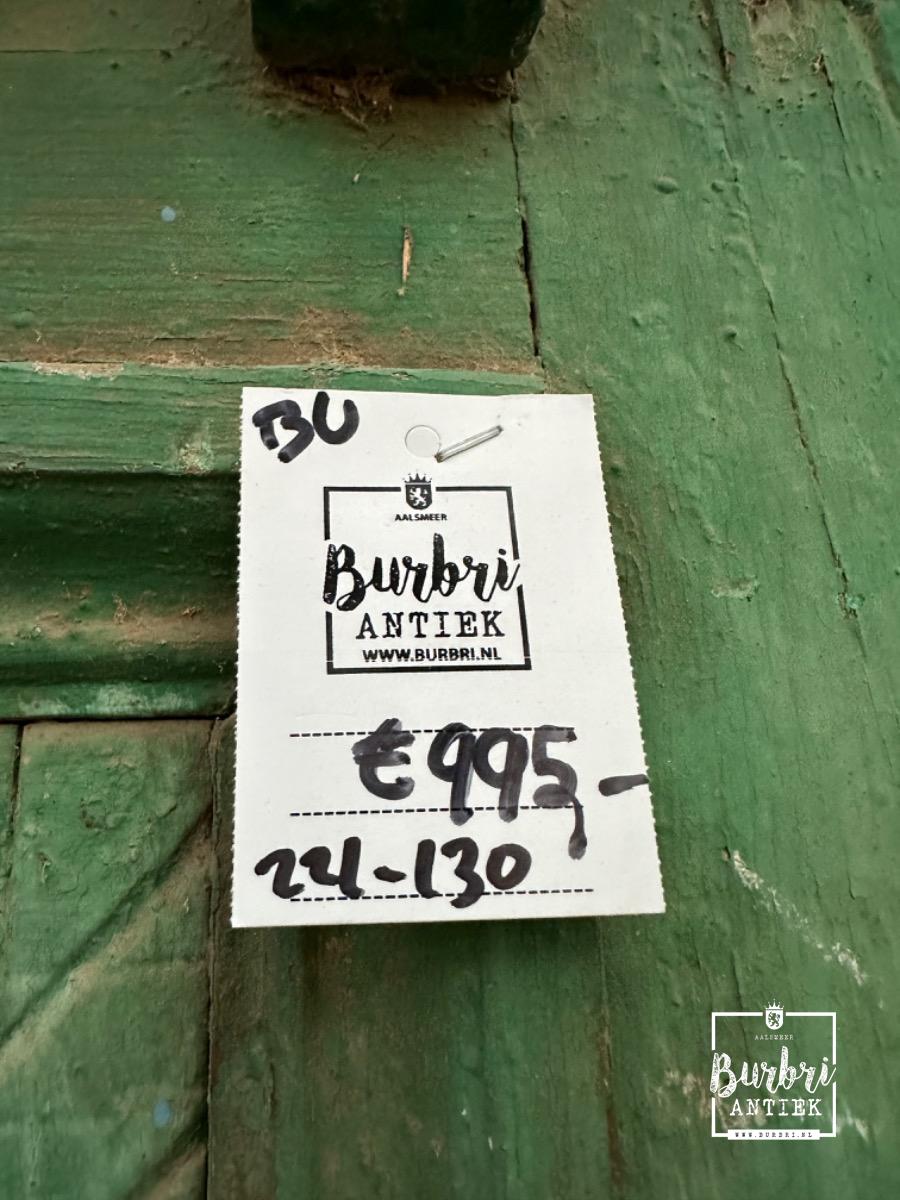 BU
AALSMEER
Burbri
ANTIEK
WWW.BURBRI.NL
€995,-
24-130
AALSMEER
Burbri
ANTIEK
WWW.BURBRI.NL